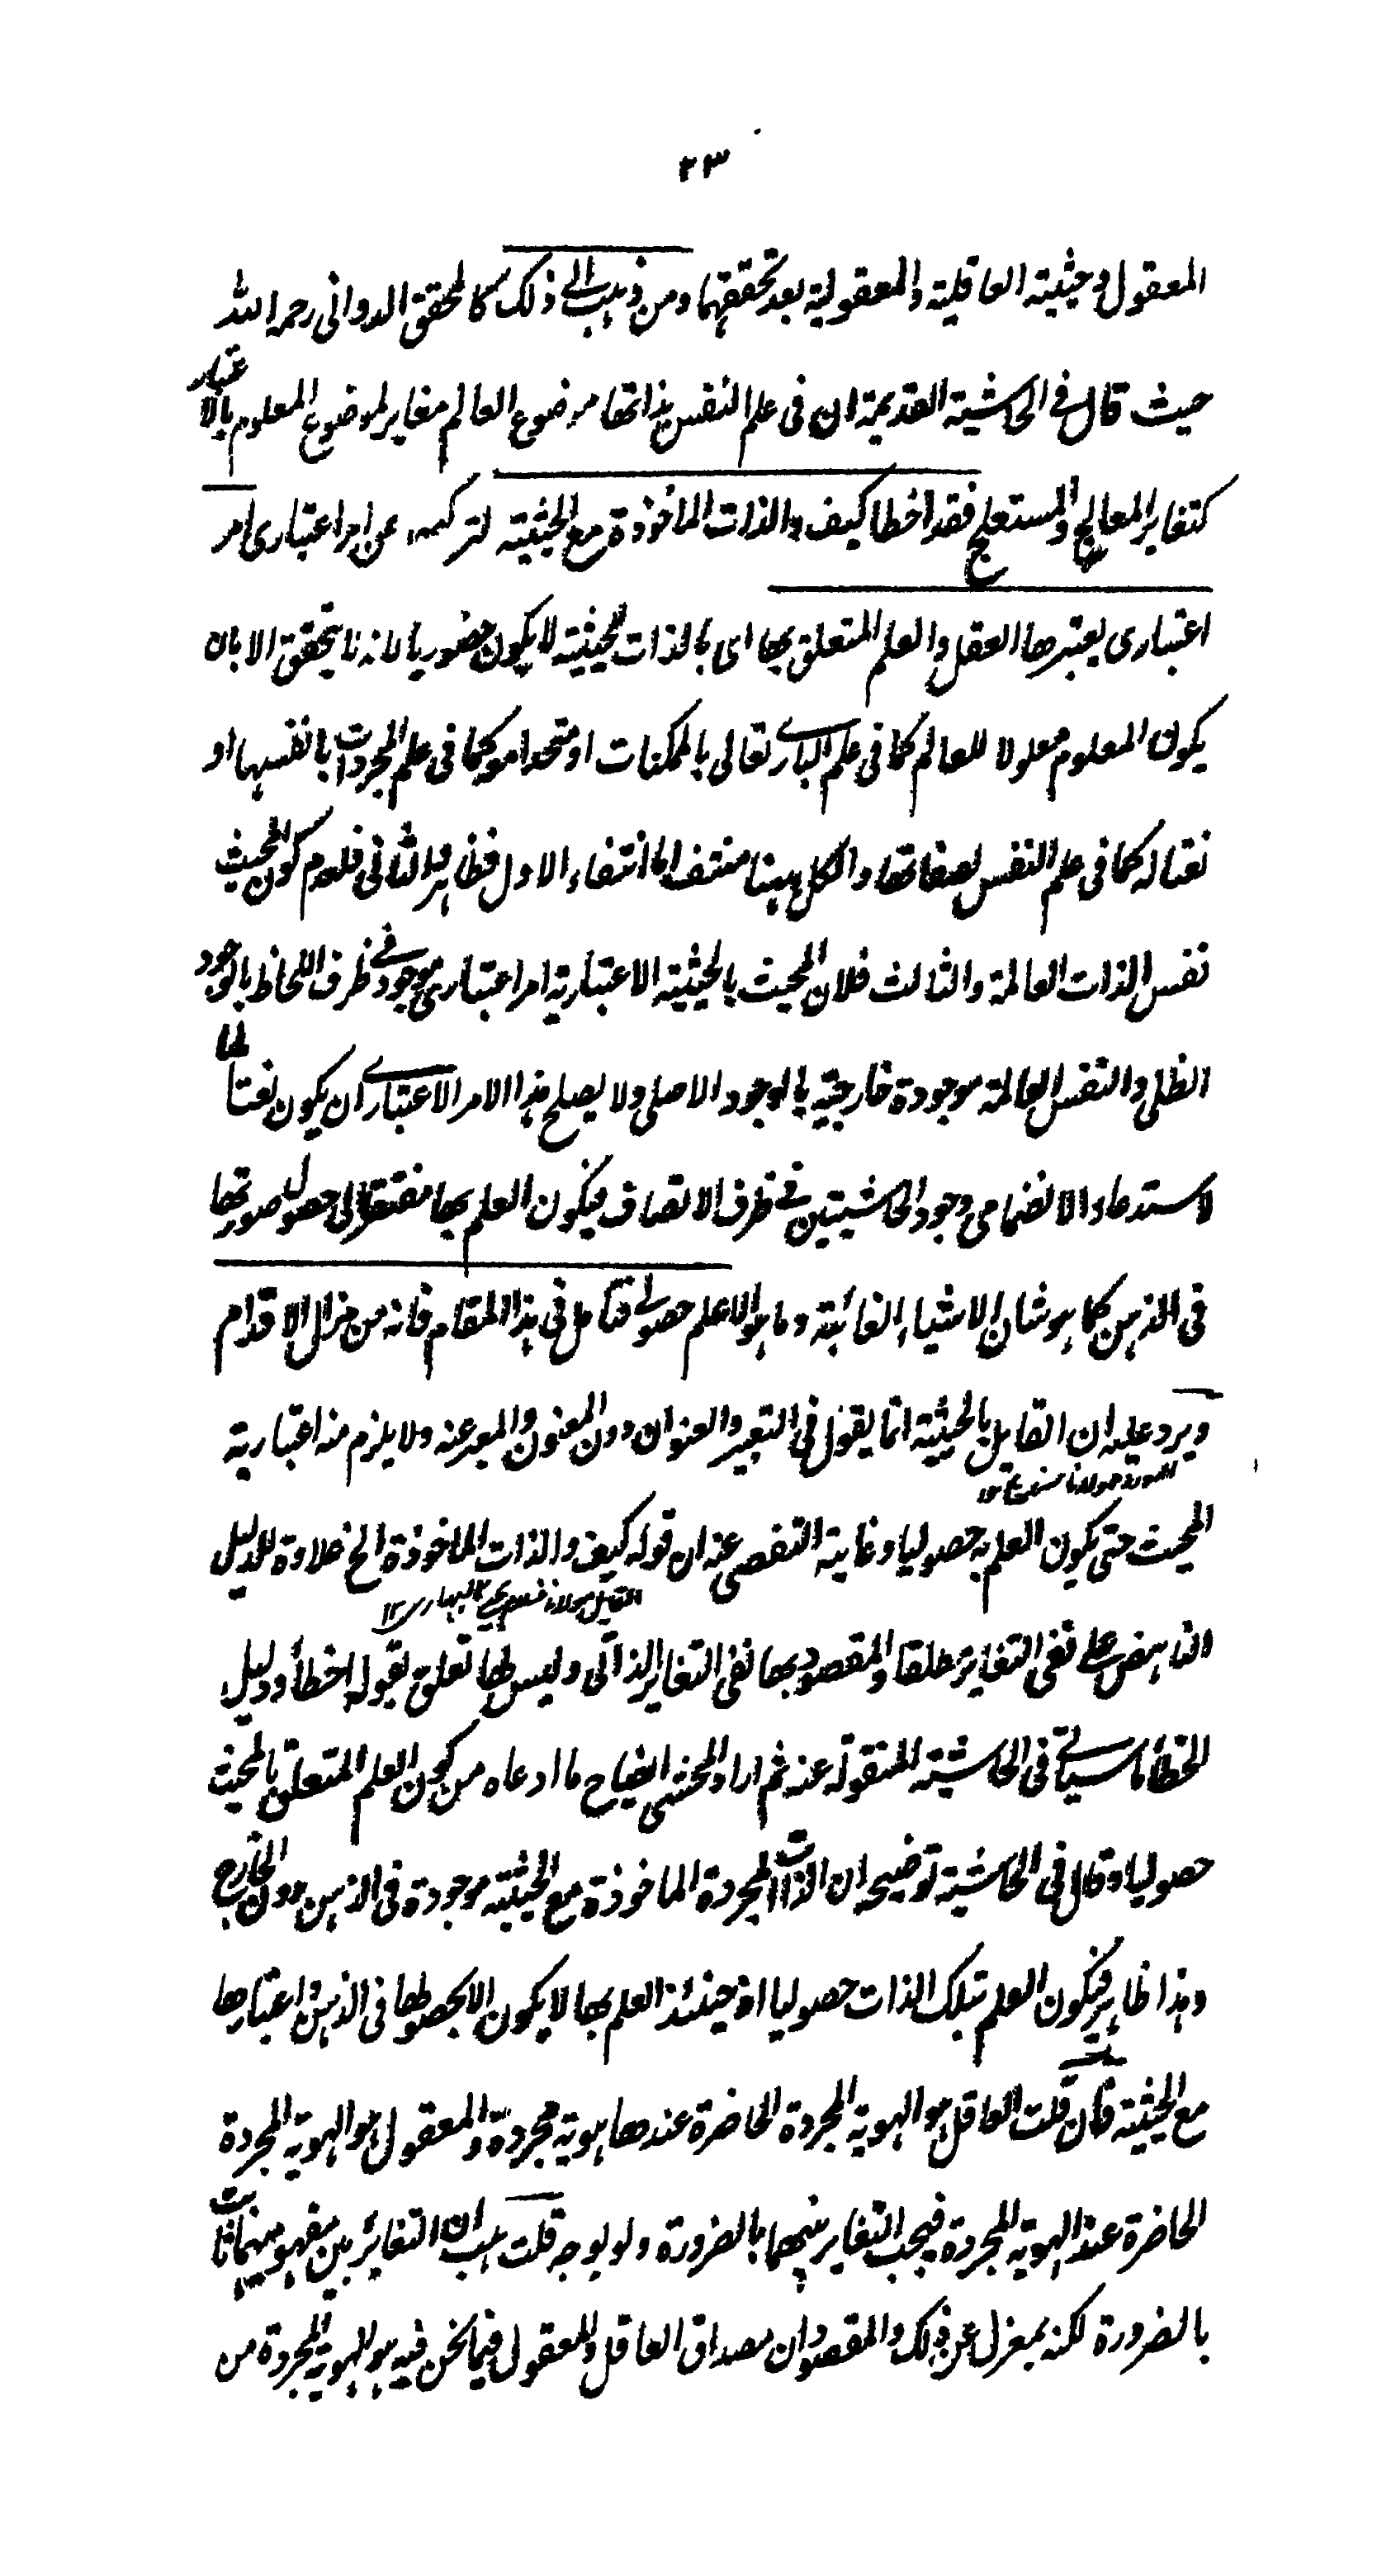 ٢٣
المعقول وحيثية العاقلية والمعقولية بعد تحققهما ومن ذهب الى ذلك كالمحقق الدوانى رحمه الله
حيث قال فى الحاشية القديمة ان فى علم النفس بذاتها موضوع العالم مغاير لموضوع المعلوم بالاعتبار
كتغاير المعالج والمستعلج فقد اخطأ كيف والذات الماخوذة مع الحيثية لتركبه عن امر اعتبارى امر
اعتبارى يعتبرها العقل والعلم المتعلق بها اى بالذات المحيثية لا يكون حضوريا لانه نا يتحقق الا بان
يكون المعلوم معلولا للعالم كما فى علم البارے تعالى بالممكنات او متحدا معه كما فى علم المجردات بانفسها او
نعتا له كما فى علم النفس بصفاتها والكل ههنا منتف اما انتفاء الاول فظاهر واما الثانى فلعدم كون المحيث
نفس الذات العالمة والثالث فلان المحيث بالحيثية الاعتبارية امر اعتبارى موجود فے ظرف اللحاظ بالوجود
الظلى والنفس العالمة موجودة خارجية بالوجود الاصلى ولا يصلح هذا الامر الاعتبارے ان يكون نعتا لها
لاستدعاء الانضمامى وجود الحاشيتين فے ظرف الاتصاف فيكون العلم بها مفتقرا الى حصول صورتها
فى الذهن كما هو شان الاشياء الغائبة وما هو الا علم حصولے فتامل فى هذا المقام فانه من مزال الاقدام
ويرد عليه ان القايل بالحيثية انما يقول فى التعبير والعنوان دون المعنون والمعبر عنه ولا يلزم منه اعتبارية
المحيث حتى يكون العلم به حصوليا وغاية التفصى عنه ان قوله كيف والذات الماخوذة الخ علاوة للدليل
القايل مولانا غلام يحيى البهارى ١٢
الناهض على نفى التغاير مطلقا والمقصود بها نفى التغاير الذاتى وليس لها تعلق بقوله اخطأ ودليل
الخطأ ما سياتے فى الحاشية المنقولة عنه ثم اراد المحشى ايضاح ما ادعاه من كون العلم المتعلق بالمحيث
حصوليا وقال فى الحاشية توضيحه ان الذات المجردة الماخوذة مع الحيثية موجودة فى الذهن دون الخارج
وهذا ظاهر فيكون العلم بتلك الذات حصوليا اذ حينئذ العلم بها لا يكون الا بحصولها فى الذهن واعتبارها
مع الحيثية فان قلت العاقل هو الهوية المجردة الحاضرة عندها هوية مجردة والمعقول هو الهوية المجردة
الحاضرة عند الهوية المجردة فيجب التغاير بينهما بالضرورة ولو بوجه قلت هب ان التغاير بين مفهوميهما ثابت
بالضرورة لكنه بمعزل عن ذلك والمقصود ان مصداق العاقل والمعقول فيما نحن فيه هو الهوية المجردة من